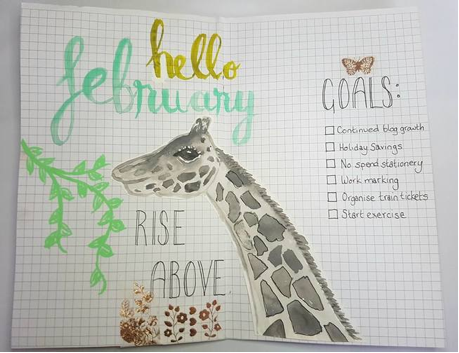 hello
february
RISE
ABOVE.
GOALS:
Continued blog growth
Holiday Savings
No spend stationery
Work marking
Organise train tickets
Start exercise